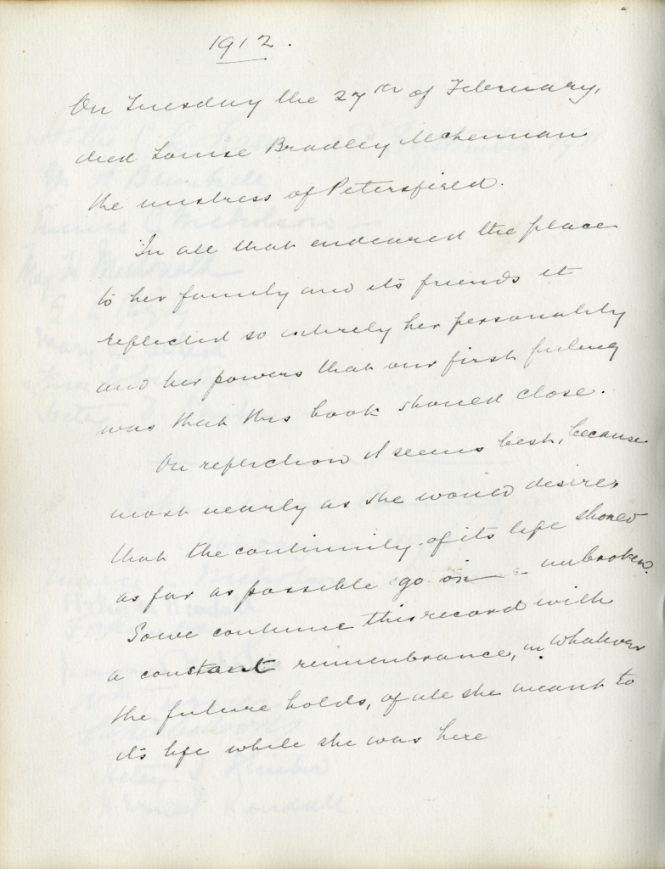 1912.
On Tuesday the 27th of February,
died Louise Bradley McKennan
the mistress of Petersfield.
In all that endeared the place
to her family and its friends it
reflected so entirely her personality
and her powers that our first feeling
was that this book should close.
On reflection it seems best, because
most nearly as she would desire,
that the continuity of its life should
as far as possible go on unbroken.
So we continue this record with
a constant remembrance, in whatever
the future holds, of all she meant to
its life while she was here